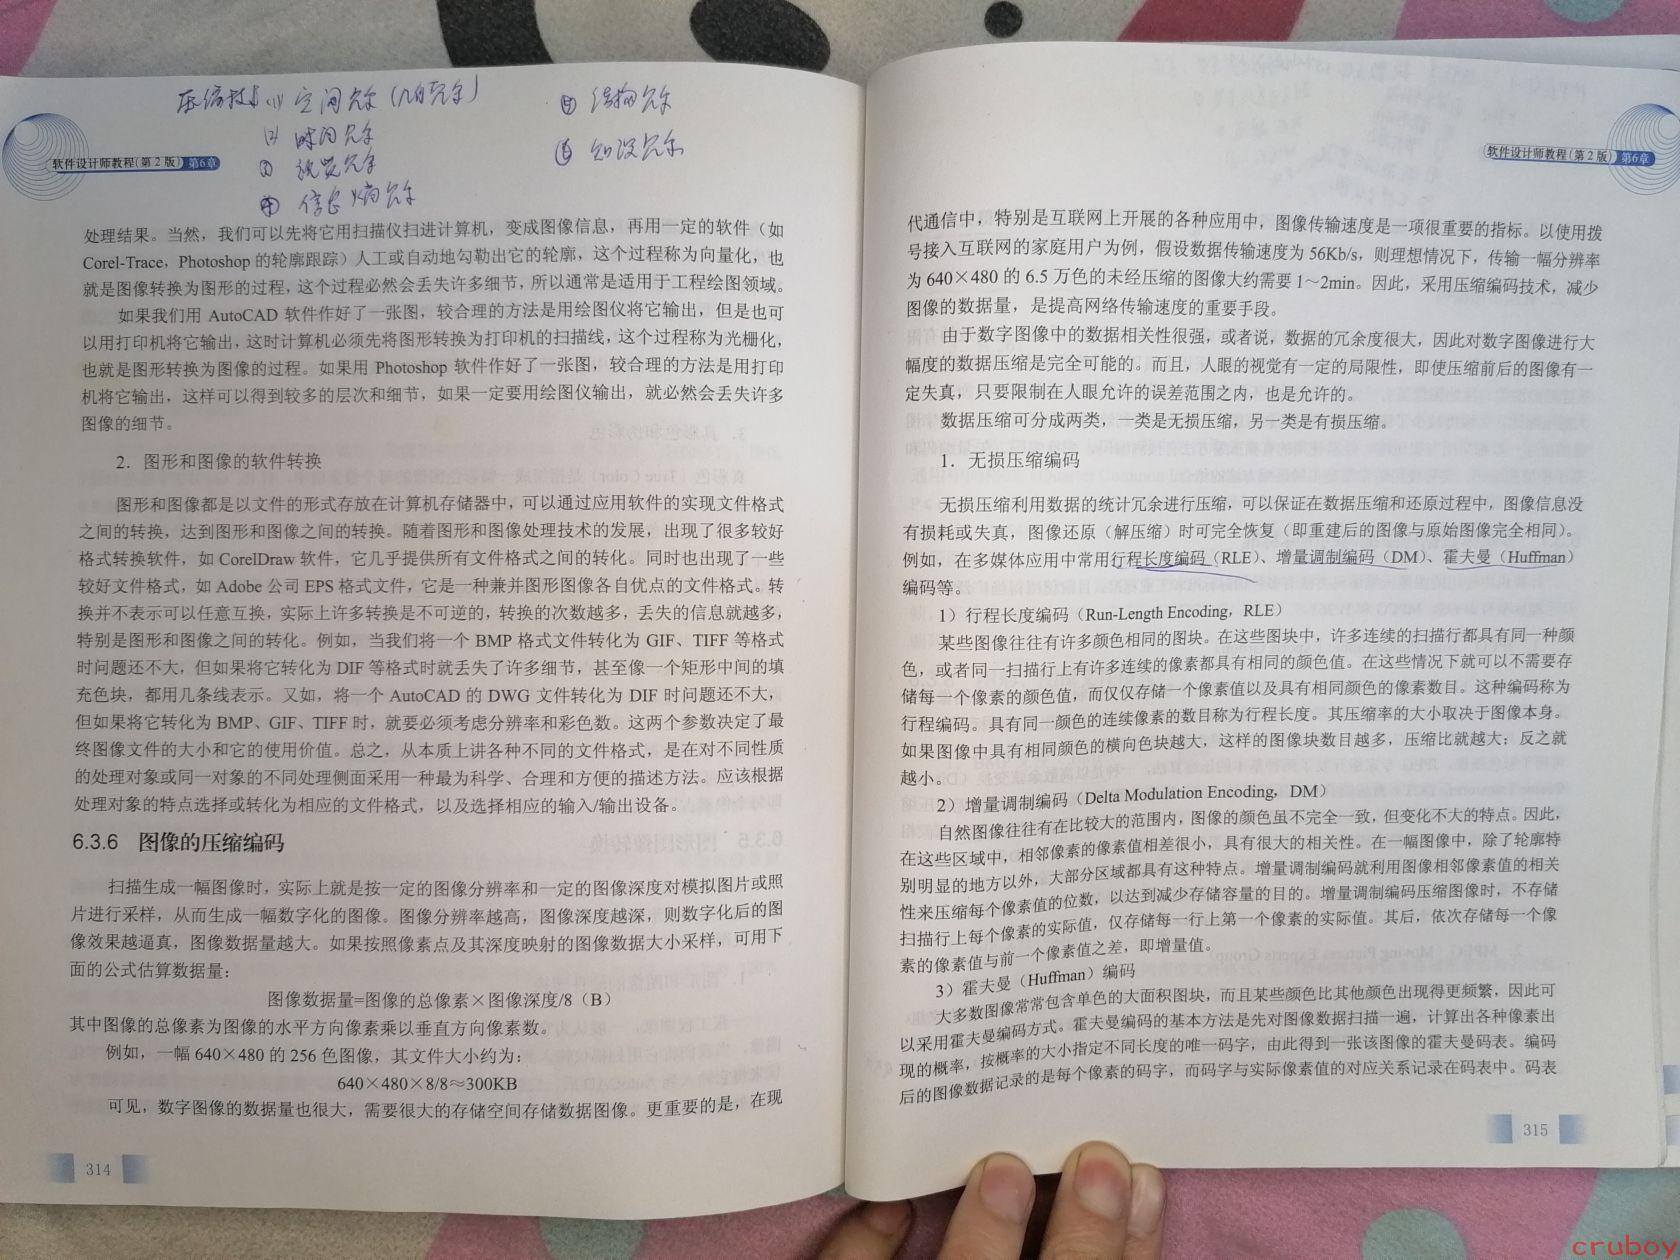 压缩技术 (1) 空间冗余（几何冗余）
(2) 时间冗余
(3) 视觉冗余
(4) 信息熵冗余
(5) 结构冗余
(6) 知识冗余
软件设计师教程（第2版） 第6章
处理结果。当然，我们可以先将它用扫描仪扫进计算机，变成图像信息，再用一定的软件（如
Corel-Trace，Photoshop 的轮廓跟踪）人工或自动地勾勒出它的轮廓，这个过程称为向量化，也
就是图像转换为图形的过程，这个过程必然会丢失许多细节，所以通常是适用于工程绘图领域。
如果我们用 AutoCAD 软件作好了一张图，较合理的方法是用绘图仪将它输出，但是也可
以用打印机将它输出，这时计算机必须先将图形转换为打印机的扫描线，这个过程称为光栅化，
也就是图形转换为图像的过程。如果用 Photoshop 软件作好了一张图，较合理的方法是用打印
机将它输出，这样可以得到较多的层次和细节，如果一定要用绘图仪输出，就必然会丢失许多
图像的细节。
2．图形和图像的软件转换
图形和图像都是以文件的形式存放在计算机存储器中，可以通过应用软件的实现文件格式
之间的转换，达到图形和图像之间的转换。随着图形和图像处理技术的发展，出现了很多较好
格式转换软件，如 CorelDraw 软件，它几乎提供所有文件格式之间的转化。同时也出现了一些
较好文件格式，如 Adobe 公司 EPS 格式文件，它是一种兼并图形图像各自优点的文件格式。转
换并不表示可以任意互换，实际上许多转换是不可逆的，转换的次数越多，丢失的信息就越多，
特别是图形和图像之间的转化。例如，当我们将一个 BMP 格式文件转化为 GIF、TIFF 等格式
时问题还不大，但如果将它转化为 DIF 等格式时就丢失了许多细节，甚至像一个矩形中间的填
充色块，都用几条线表示。又如，将一个 AutoCAD 的 DWG 文件转化为 DIF 时问题还不大，
但如果将它转化为 BMP、GIF、TIFF 时，就要必须考虑分辨率和彩色数。这两个参数决定了最
终图像文件的大小和它的使用价值。总之，从本质上讲各种不同的文件格式，是在对不同性质
的处理对象或同一对象的不同处理侧面采用一种最为科学、合理和方便的描述方法。应该根据
处理对象的特点选择或转化为相应的文件格式，以及选择相应的输入/输出设备。
6.3.6 图像的压缩编码
扫描生成一幅图像时，实际上就是按一定的图像分辨率和一定的图像深度对模拟图片或照
片进行采样，从而生成一幅数字化的图像。图像分辨率越高，图像深度越深，则数字化后的图
像效果越逼真，图像数据量越大。如果按照像素点及其深度映射的图像数据大小采样，可用下
面的公式估算数据量：
图像数据量=图像的总像素×图像深度/8（B）
其中图像的总像素为图像的水平方向像素乘以垂直方向像素数。
例如，一幅 640×480 的 256 色图像，其文件大小约为：
640×480×8/8≈300KB
可见，数字图像的数据量也很大，需要很大的存储空间存储数据图像。更重要的是，在现
314
软件设计师教程（第2版） 第6章
代通信中，特别是互联网上开展的各种应用中，图像传输速度是一项很重要的指标。以使用拨
号接入互联网的家庭用户为例，假设数据传输速度为 56Kb/s，则理想情况下，传输一幅分辨率
为 640×480 的 6.5 万色的未经压缩的图像大约需要 1～2min。因此，采用压缩编码技术，减少
图像的数据量，是提高网络传输速度的重要手段。
由于数字图像中的数据相关性很强，或者说，数据的冗余度很大，因此对数字图像进行大
幅度的数据压缩是完全可能的。而且，人眼的视觉有一定的局限性，即使压缩前后的图像有一
定失真，只要限制在人眼允许的误差范围之内，也是允许的。
数据压缩可分成两类，一类是无损压缩，另一类是有损压缩。
1．无损压缩编码
无损压缩利用数据的统计冗余进行压缩，可以保证在数据压缩和还原过程中，图像信息没
有损耗或失真，图像还原（解压缩）时可完全恢复（即重建后的图像与原始图像完全相同）。
例如，在多媒体应用中常用行程长度编码（RLE）、增量调制编码（DM）、霍夫曼（Huffman）
编码等。
1）行程长度编码（Run-Length Encoding，RLE）
某些图像往往有许多颜色相同的图块。在这些图块中，许多连续的扫描行都具有同一种颜
色，或者同一扫描行上有许多连续的像素都具有相同的颜色值。在这些情况下就可以不需要存
储每一个像素的颜色值，而仅仅存储一个像素值以及具有相同颜色的像素数目。这种编码称为
行程编码。具有同一颜色的连续像素的数目称为行程长度。其压缩率的大小取决于图像本身。
如果图像中具有相同颜色的横向色块越大，这样的图像块数目越多，压缩比就越大；反之就
越小。
2）增量调制编码（Delta Modulation Encoding，DM）
自然图像往往有在比较大的范围内，图像的颜色虽不完全一致，但变化不大的特点。因此，
在这些区域中，相邻像素的像素值相差很小，具有很大的相关性。在一幅图像中，除了轮廓特
别明显的地方以外，大部分区域都具有这种特点。增量调制编码就利用图像相邻像素值的相关
性来压缩每个像素值的位数，以达到减少存储容量的目的。增量调制编码压缩图像时，不存储
扫描行上每个像素的实际值，仅存储每一行上第一个像素的实际值。其后，依次存储每一个像
素的像素值与前一个像素值之差，即增量值。
3）霍夫曼（Huffman）编码
大多数图像常常包含单色的大面积图块，而且某些颜色比其他颜色出现得更频繁，因此可
以采用霍夫曼编码方式。霍夫曼编码的基本方法是先对图像数据扫描一遍，计算出各种像素出
现的概率，按概率的大小指定不同长度的唯一码字，由此得到一张该图像的霍夫曼码表。编码
后的图像数据记录的是每个像素的码字，而码字与实际像素值的对应关系记录在码表中。码表
315
cruboy